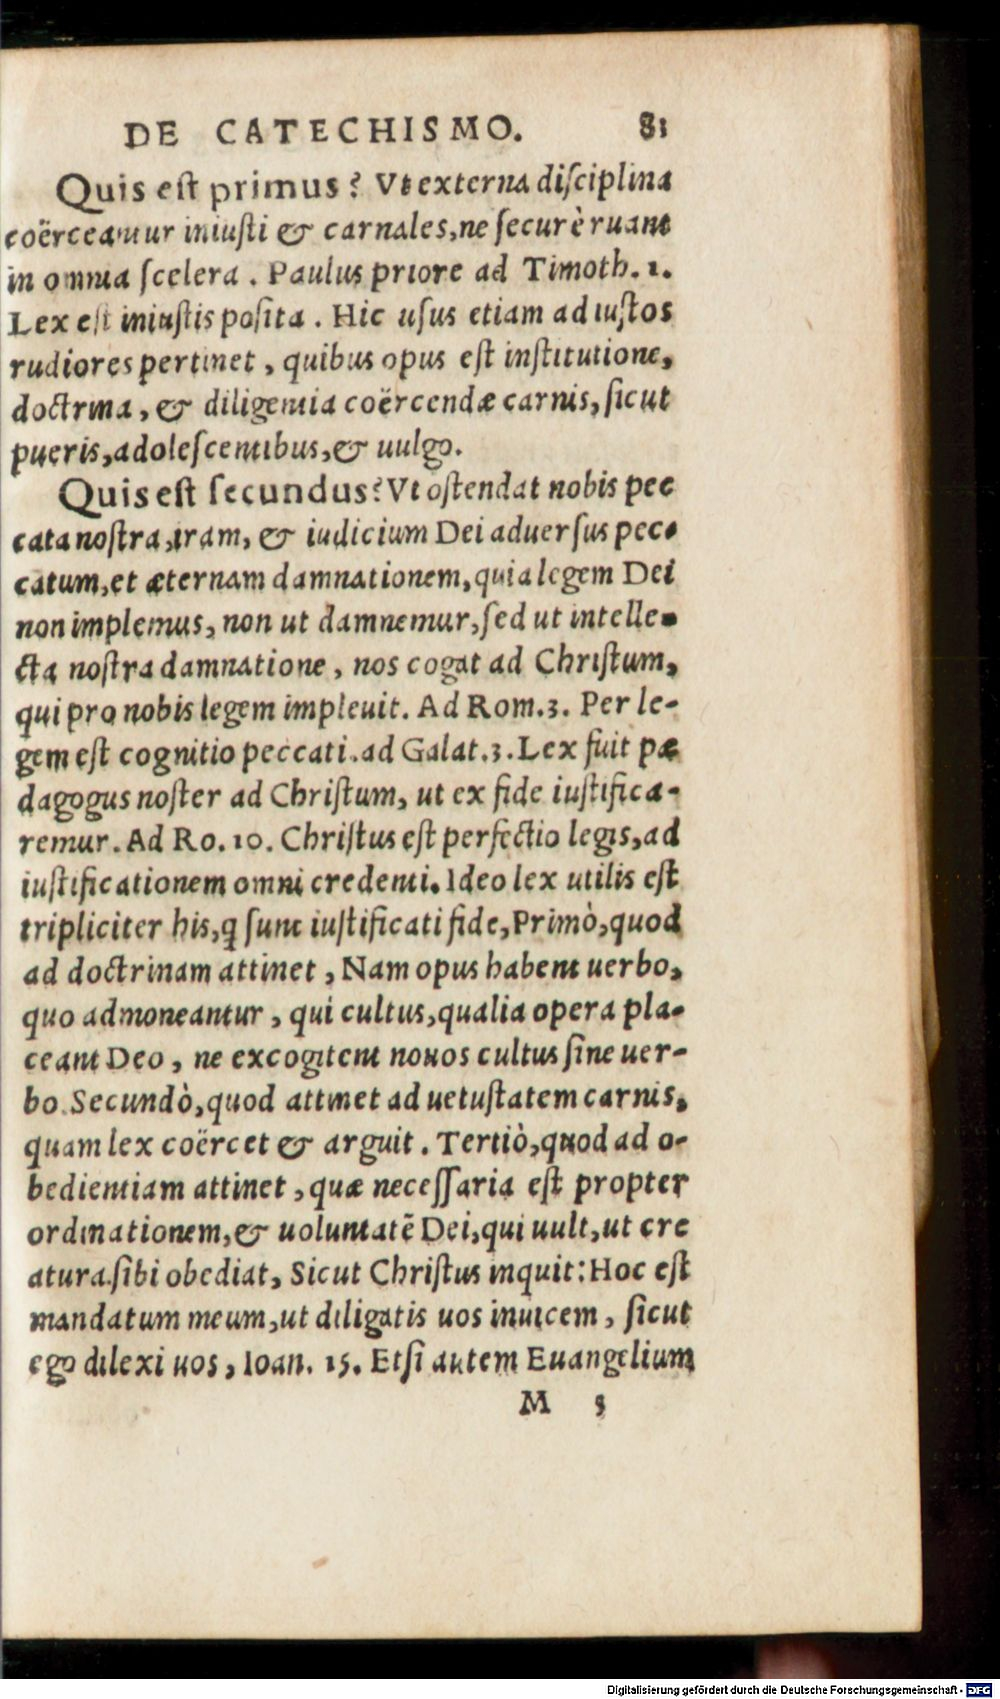 DE CATECHISMO. 81
Quis eſt primus? Vt externa diſciplina
coërceantur iniuſti & carnales, ne ſecurè ruant
in omnia ſcelera. Paulus priore ad Timoth. 1.
Lex eſt iniuſtis poſita. Hic uſus etiam ad iuſtos
rudiores pertinet, quibus opus eſt inſtitutione,
doctrina, & diligentia coërcendæ carnis, ſicut
pueris, adoleſcentibus, & uulgo.
Quis eſt ſecundus? Vt oſtendat nobis pec
cata noſtra, iram, & iudicium Dei aduerſus pec-
catum, et æternam damnationem, quia legem Dei
non implemus, non ut damnemur, ſed ut intelle-
cta noſtra damnatione, nos cogat ad Chriſtum,
qui pro nobis legem impleuit. Ad Rom. 3. Per le-
gem eſt cognitio peccati. ad Galat. 3. Lex fuit pæ
dagogus noſter ad Chriſtum, ut ex fide iuſtifica-
remur. Ad Ro. 10. Chriſtus eſt perfectio legis, ad
iuſtificationem omni credenti. Ideo lex utilis eſt
tripliciter his, ꝗ ſunt iuſtificati fide, Primò, quod
ad doctrinam attinet, Nam opus habent uerbo,
quo admoneantur, qui cultus, qualia opera pla-
ceant Deo, ne excogitent nouos cultus ſine uer-
bo. Secundò, quod attinet ad uetuſtatem carnis,
quam lex coërcet & arguit. Tertiò, quod ad o-
bedientiam attinet, quæ neceſſaria eſt propter
ordinationem, & uoluntatē Dei, qui uult, ut cre
atura ſibi obediat, Sicut Chriſtus inquit: Hoc eſt
mandatum meum, ut diligatis uos inuicem, ſicut
ego dilexi uos, Ioan. 15. Etſi autem Euangelium
M 5
Digitalisierung gefördert durch die Deutsche Forschungsgemeinschaft - DFG